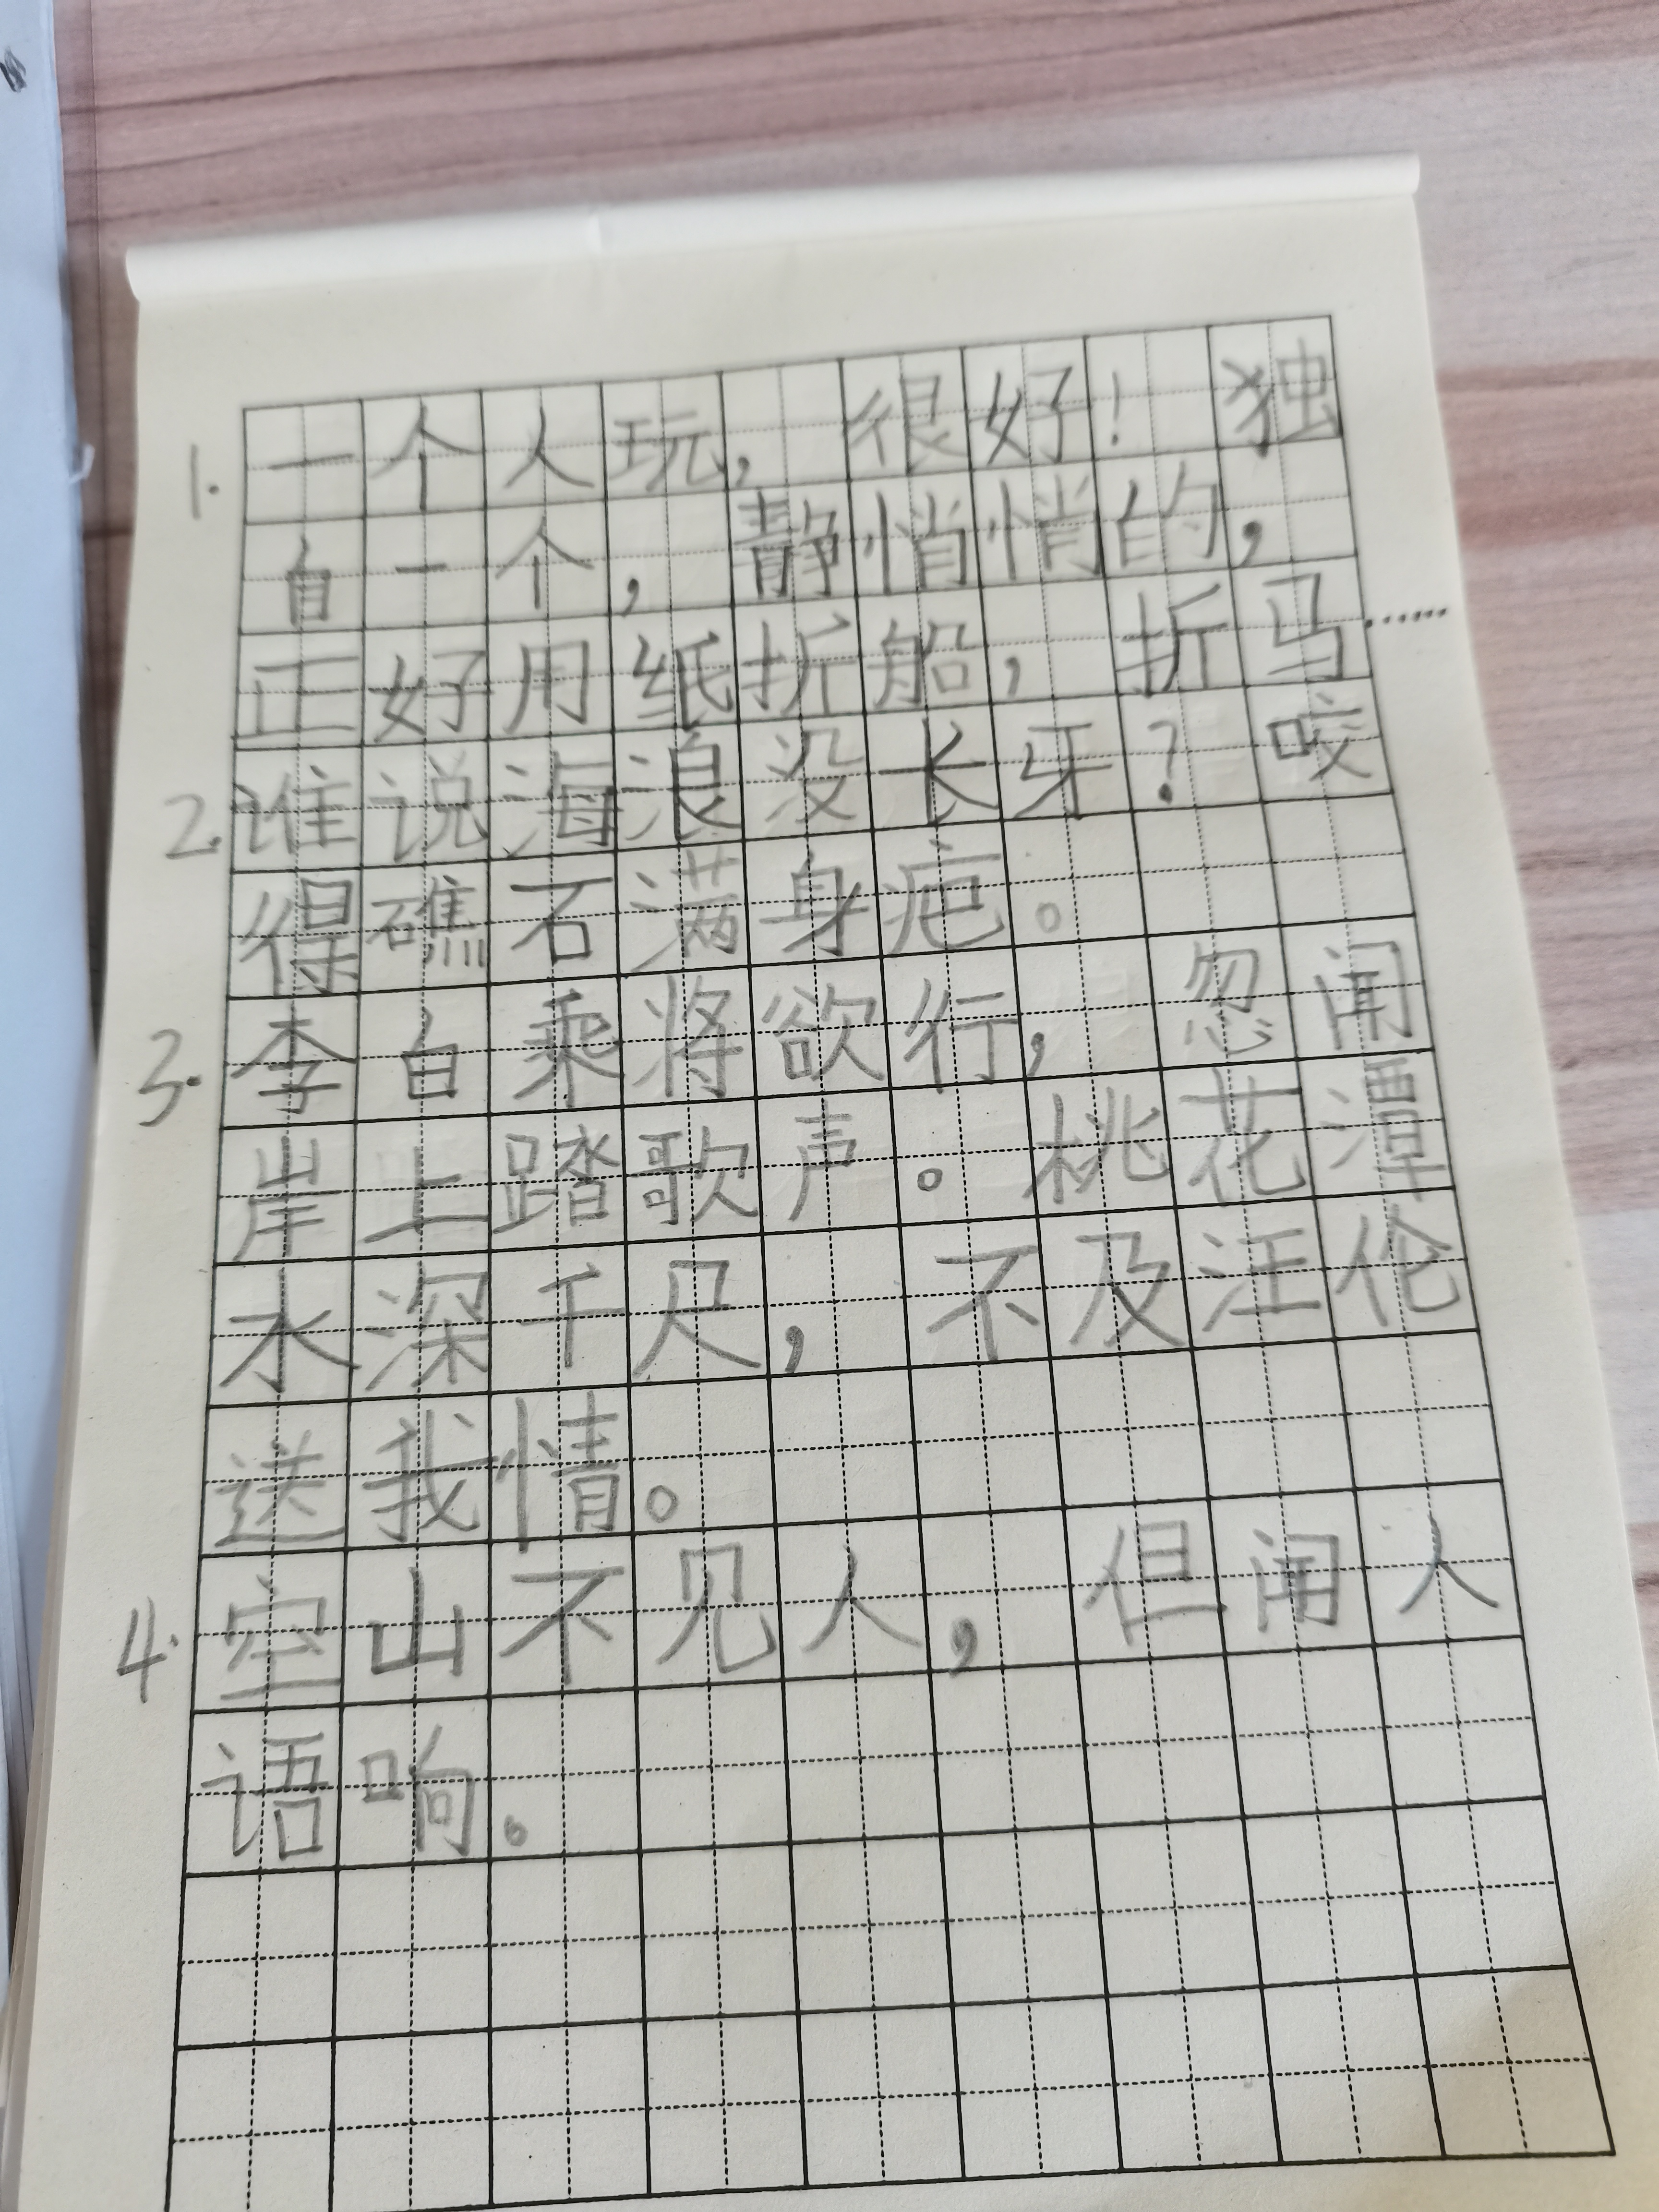 1. 一个人玩，很好！独
自一个，静悄悄的，
正好用纸折船，折马……
2. 谁说海浪没长牙？咬
得礁石满身疤。
3. 李白乘将欲行，忽闻
岸上踏歌声。桃花潭
水深千尺，不及汪伦
送我情。
4. 空山不见人，但闻人
语响。